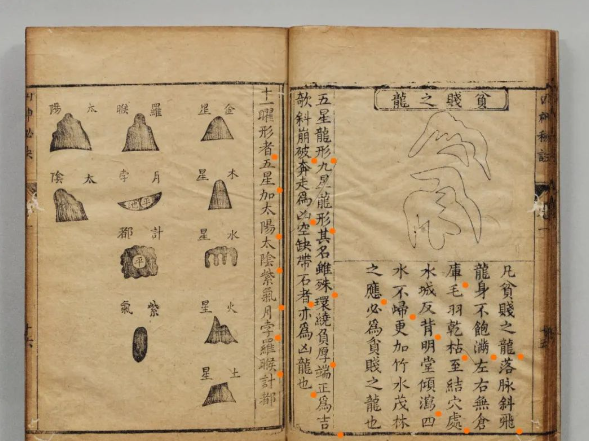 貧賤之龍
凡貧賤之龍落脉斜飛
龍身不飽滿左右無倉
庫毛羽乾枯至結穴處
水城反背明堂傾瀉四
水不歸更加竹水茂林
之應必為貧賤之龍也
五星龍形九星龍形其名雖殊環繞負厚端正為吉
欹斜崩破奔走為凶空缺帶石者亦為凶龍也
十一曜形者五星加太陽太陰紫氣月孛羅㬋計都
金星
木星
水星
火星
土星
羅㬋
月孛
計都
紫氣
太陽
太陰